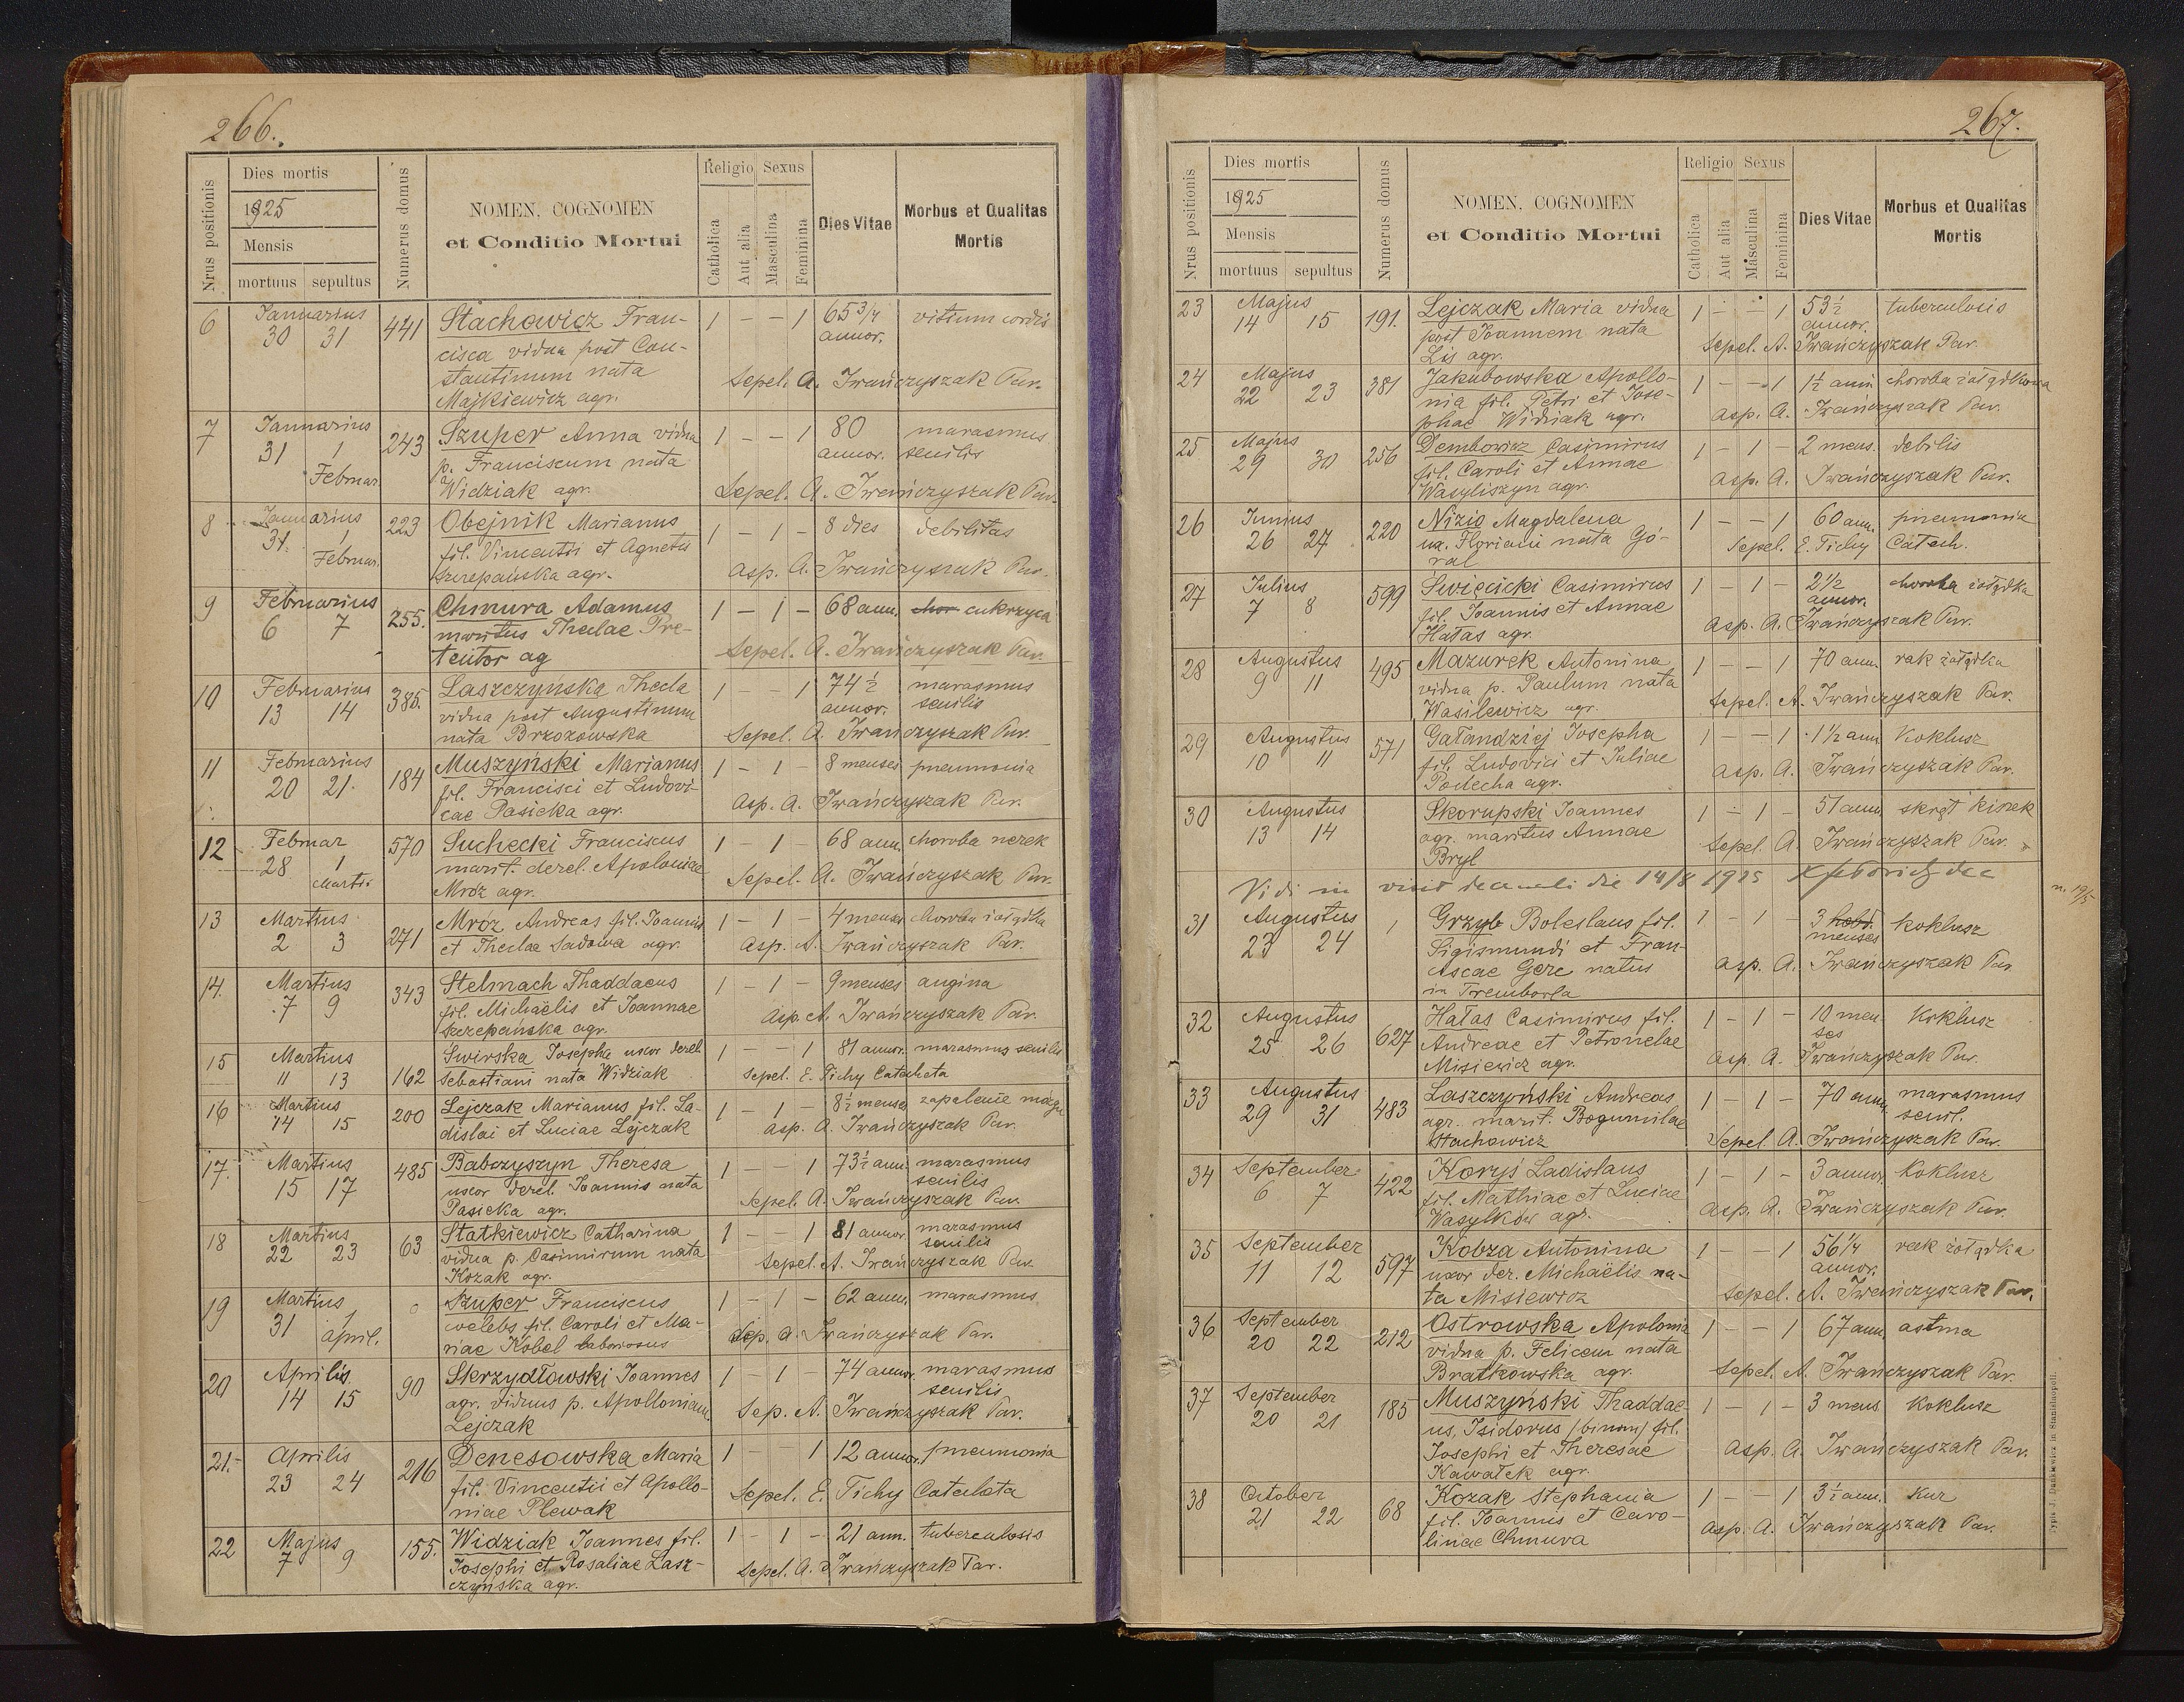 266.
Nrus positionis
Dies mortis
1925
Mensis
mortuus sepultus
Numerus domus
NOMEN, COGNOMEN
et Conditio Mortui
Religio
Catholica
Aut alia
Sexus
Masculina
Feminina
Dies Vitae
Morbus et Qualitas
Mortis
6 Januarius 30 31 441 Stachowicz Fran- 1 - - 1 65 3/4 annor. vitium cordis
cisca vidua post Con-
stantinum nata Sepel. A. Iwańczyszak Par.
Majkiewicz agr.
7 Januarius 31 1 Februar. 243 Szuper Anna vidua 1 - - 1 80 annor. marasmus senilis
p. Franciscum nata
Widziak agr. Sepel. A. Iwańczyszak Par.
8 Januarius 31. 1 Februar. 223 Obejnik Marianus 1 - 1 - 8 dies debilitas
fil. Vincentii et Agnetis
Szczepańska agr. asp. A. Iwańczyszak Par.
9 Februarius 6 7 255. Chmura Adamus 1 - 1 - 68 ann. chor cukrzyca
maritus Theclae Pre-
tentor ag Sepel. A. Iwańczyszak Par.
10 Februarius 13 14 385. Laszczyńska Thecla 1 - - 1 74 1/2 annor. marasmus senilis
vidua post Augustinum
nata Brzozowska Sepel. A. Iwańczyszak Par.
11 Februarius 20 21. 184 Muszyński Marianus 1 - 1 - 8 menses pneumonia
fil. Francisci et Ludovi-
cae Pasieka agr. Asp. A. Iwańczyszak Par.
12 Februar 28 1 Martii 570 Suchecki Franciscus 1 - 1 - 68 ann. choroba nerek
marit. derel. Apoloniae
Mróz agr. Sepel. A. Iwańczyszak Par.
13 Martius 2 3 271 Mróz Andreas fil. Joannis 1 - 1 - 4 menses choroba żołądka
et Theclae Sadowa agr. asp. A. Iwańczyszak Par.
14. Martius 7 9 343 Stelmach Thaddaeus 1 - 1 - 9 menses angina
fil. Michaëlis et Joannae
Szczepańska agr. asp. A. Iwańczyszak Par.
15 Martius 11 13 162 Swirska Josepha uxor derel. 1 - - 1 81 annor. marasmus senilis
Sebastiani nata Widziak Sepel. E. Tichy Catecheta
16 Martius 14 15 200 Lejczak Marianus fil. La- 1 - 1 - 8 1/2 menses zapalenie mózgu
dislai et Luciae Lejczak asp. A. Iwańczyszak Par.
17. Martius 15 17 485 Babczyszyn Theresa 1 - - 1 73 1/2 ann. marasmus senilis
uxor derel. Joannis nata
Pasieka agr. Sepel. A. Iwańczyszak Par.
18 Martius 22 23 63 Statkiewicz Catharina 1 - - 1 81 annor. marasmus senilis
vidua p. Casimirum nata
Kozak agr. Sepel. A. Iwańczyszak Par.
19 Martius 31 1 April. Szuper Franciscus 1 - 1 - 62 ann. marasmus
coelebs fil. Caroli et Ma-
riae Kobel laboriosus Sep. A. Iwańczyszak Par.
20 Aprilis 14 15 90 Skrzydłowski Joannes 1 - 1 - 74 annor. marasmus senilis
agr. viduus p. Apolloniam
Lejczak Sep. A. Iwańczyszak Par.
21. Aprilis 23 24 216 Denesowska Maria 1 - 1 12 annor. pneumonia
fil. Vincentii et Apollo-
niae Plewak Sepel. E. Tichy Catecheta
22 Majus 7 9 155. Widziak Joannes fil. 1 - 1 - 21 ann. tuberculosis
Josephi et Rosaliae Lasz-
czyńska agr. Sepel. A. Iwańczyszak Par.
267.
Nrus positionis
Dies mortis
1925
Mensis
mortuus sepultus
Numerus domus
NOMEN, COGNOMEN
et Conditio Mortui
Religio
Catholica
Aut alia
Sexus
Masculina
Feminina
Dies Vitae
Morbus et Qualitas
Mortis
23 Majus 14 15 191. Lejczak Maria vidua 1 - - 1 53 1/2 annor. tuberculosis
post Joannem nata
Lis agr. Sepel. A. Iwańczyszak Par.
24 Majus 22 23 381 Jakubowska Apollo- 1 - - 1 1 1/2 anni choroba żołądkowa
nia fil. Petri et Jose-
phae Widziak agr. asp. A. Iwańczyszak Par.
25 Majus 29 30 256 Dembowicz Casimirus 1 - 1 - 2 mens. debilis
fil. Caroli et Annae
Wasyliszyn agr. asp. A. Iwańczyszak Par.
26 Junius 26 27 220 Nizio Magdalena 1 - - 1 60 ann. pneumonia
ux. Floriani nata Gó-
ral Sepel. E. Tichy Catech.
27 Julius 7 8 599 Swiecicki Casimirus 1 - 1 - 2 1/2 annor. choroba żołądka
fil. Joannis et Annae
Hałas agr. asp. A. Iwańczyszak Par.
28 Augustus 9 11 495 Mazurek Antonina 1 - - 1 70 ann. rak żołądka
vidua p. Paulum nata
Wasilewicz agr. Sepel. A. Iwańczyszak Par.
29 Augustus 10 11 571 Gałandziej Josepha 1 - - 1 1 1/2 ann Koklusz
fil. Ludovici et Juliae
Podecha agr. asp. A. Iwańczyszak Par.
30 Augustus 13 14 Skorupski Joannes 1 - 1 - 51 ann. skręt kiszek
agr. maritus Annae
Bryl Sepel. A. Iwańczyszak Par.
Vidi in visit decanali die 14/8 1925
n. 19/5
31 Augustus 23 24 1 Grzyb Boleslaus fil. 1 - 1 - 3 menses koklusz
Sigismundi et Fran-
ciscae Gerc natus
in Trembowla asp. A. Iwańczyszak Par
32 Augustus 25 26 627 Hałas Casimirus fil. 1 - 1 - 10 men- ses Koklusz
Andreae et Petronelae
Misiewicz agr. asp. A. Iwańczyszak Par.
33 Augustus 29 31 483 Laszczyński Andreas 1 - 1 - 70 ann. marasmus senil.
agr. marit. Bogumilae
Stachowicz Sepel A. Iwańczyszak Par.
34 September 6 7 422 Koryś Ladislaus 1 - 1 - 3 annor. Koklusz
fil. Mathiae et Luciae
Wasylków agr. asp. A. Iwańczyszak Par.
35 September 11 12 597 Kobza Antonina 1 - - 1 56 1/4 annor. rak żołądka
uxor der. Michaëlis na-
ta Misiewicz Sepel. A. Iwańczyszak Par.
36 September 20 22 212 Ostrowska Apolonia 1 - - 1 67 ann. astma
vidua p. Felicem nata
Bratkowska agr. Sepel. A. Iwańczyszak Par.
37 September 20 21 185 Muszyński Thaddae- 1 - 1 - 3 mens. Koklusz
us, Isidorus /binom/ fil.
Josephi et Theresae
Kawałek agr. asp. A. Iwańczyszak Par.
38 October 21 22 68 Kozak Stephania 1 - - 1 3 1/2 ann. Kur
fil. Joannis et Caro-
linae Chmura asp. A. Iwańczyszak Par.
Typis J. Dankiewicz in Stanislaopoli.